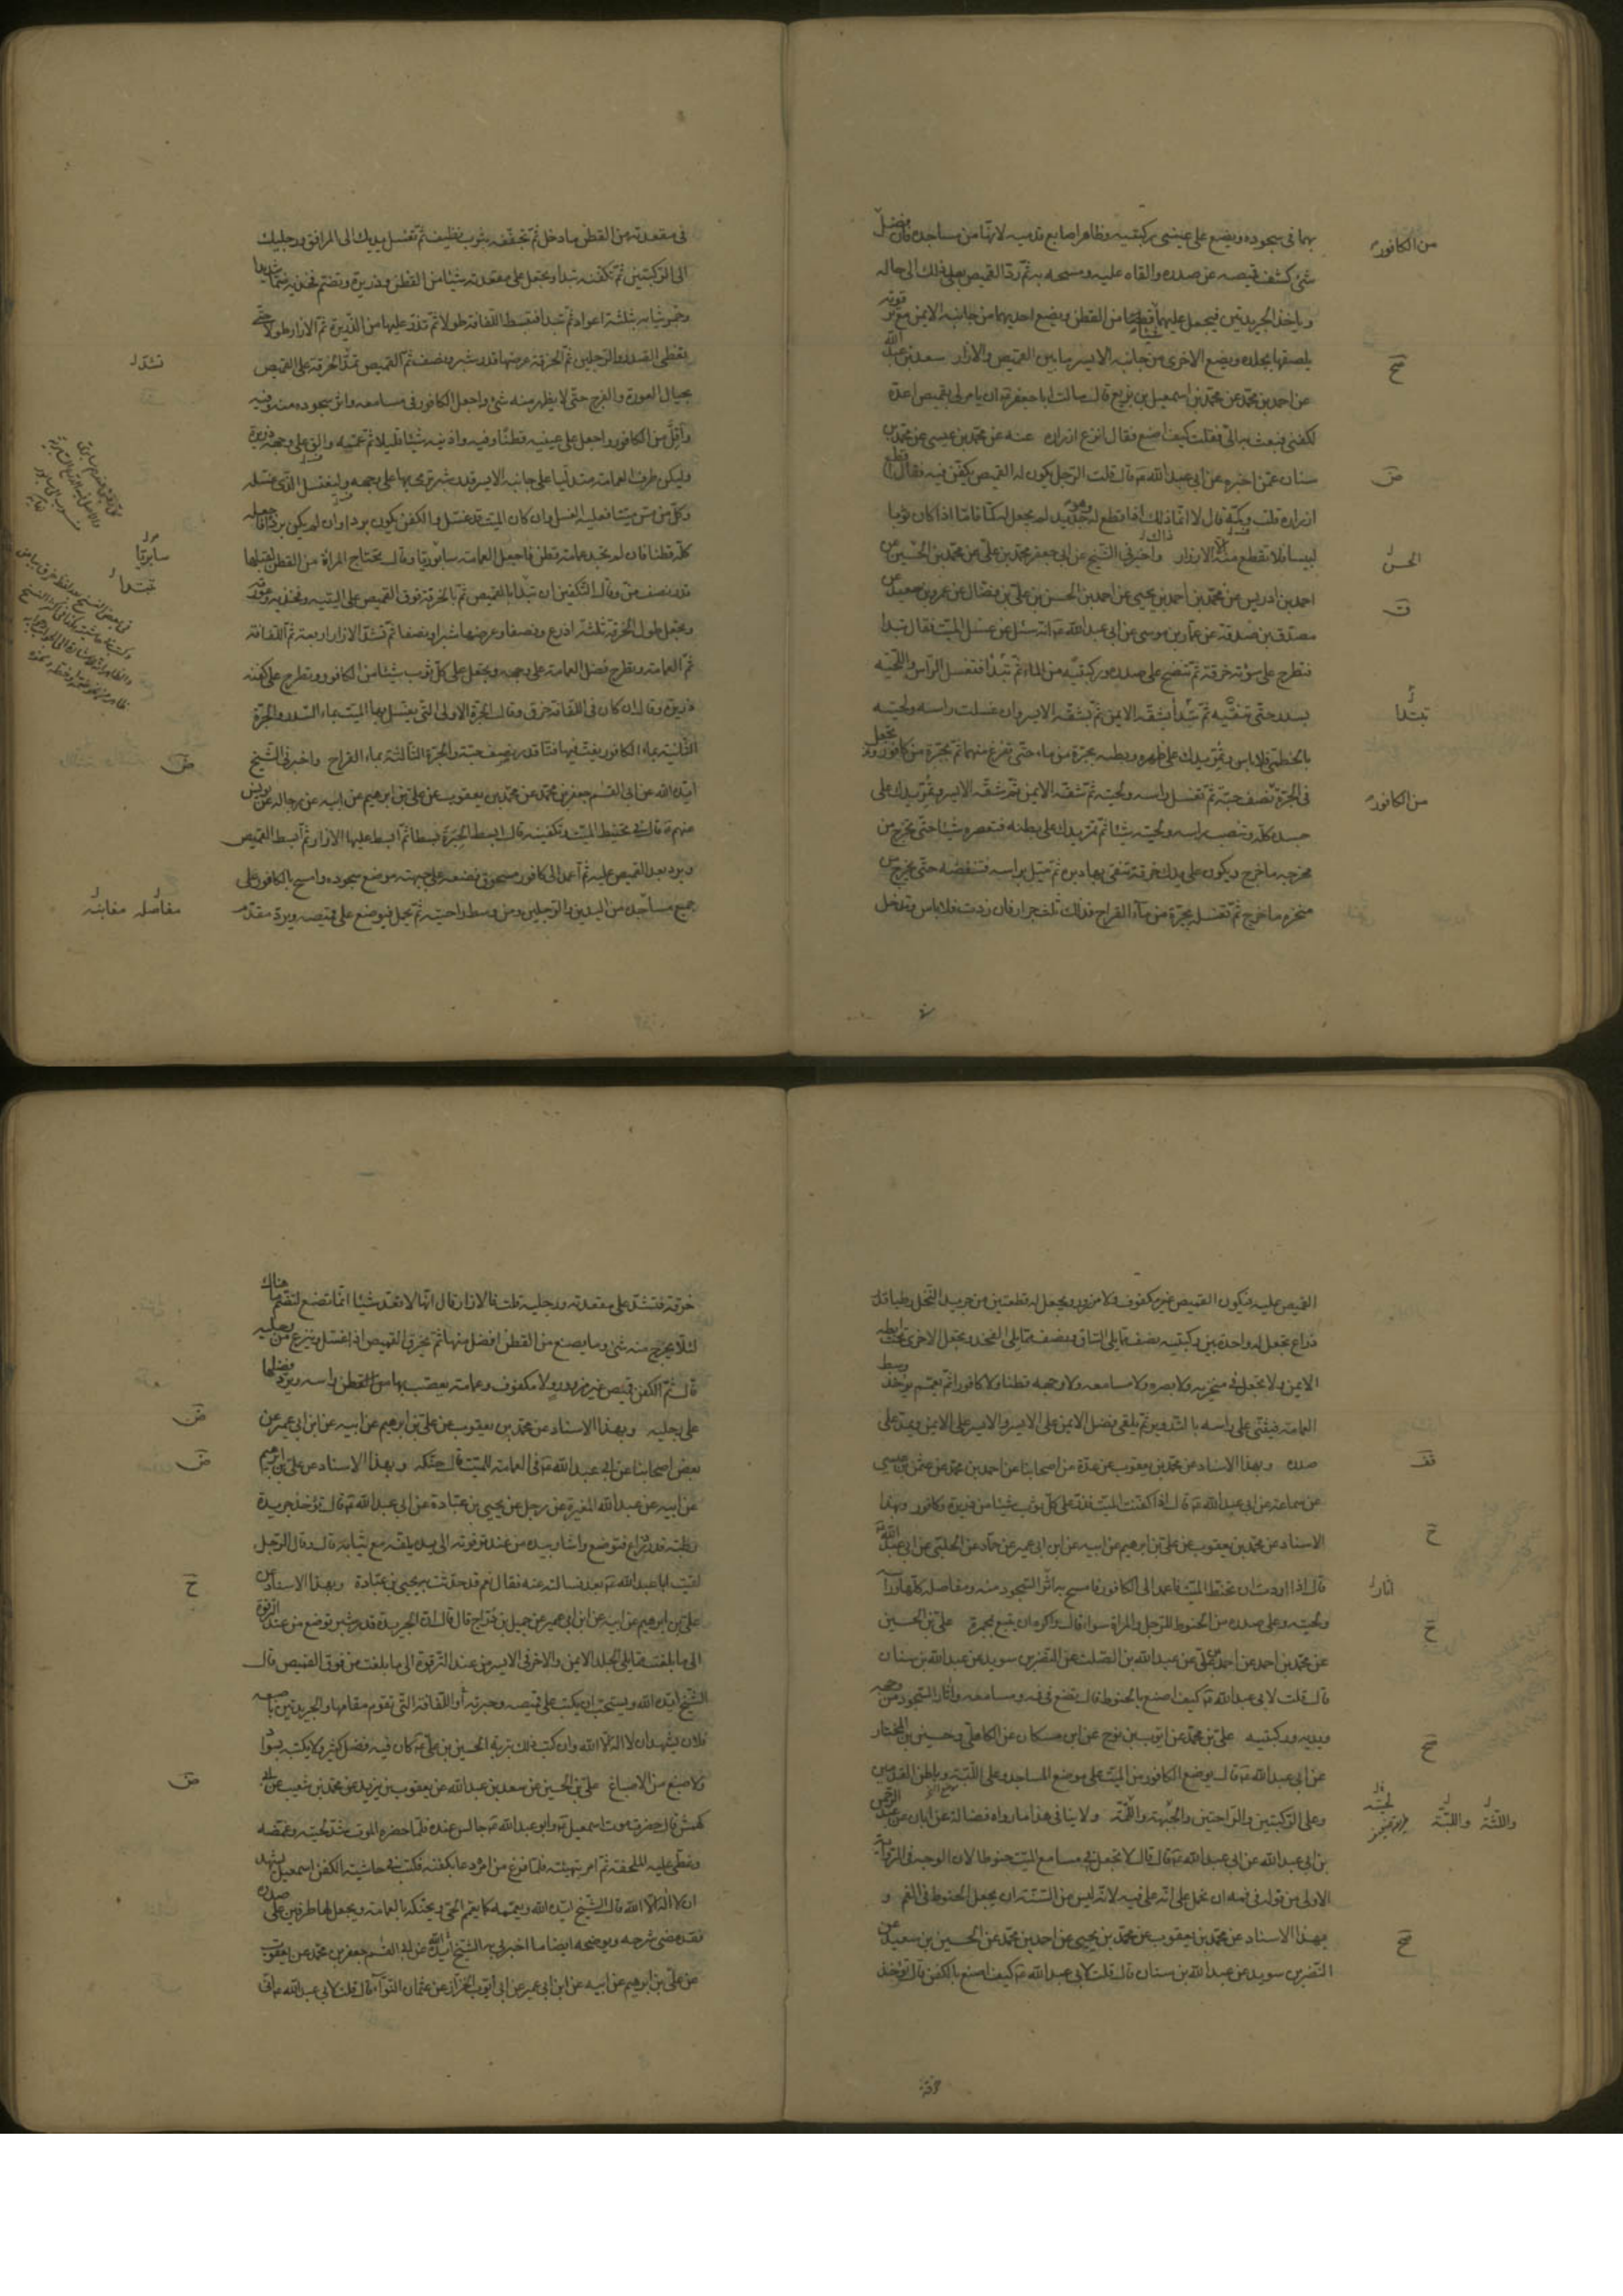 بهما في سجوده ويضع على عيني ركبتيه وظاهر اصابع قدميه لانها من مساجده فان فضل
شئ كشف قميصه عن صدره والقاه عليه ومسحه به ثم رد القميص بعد ذلك الى حاله
وياخذ الجريدتين فيجعل عليهما شيئا من القطن ويضع احديهما من جانبه الايمن مع ترقوته
يلصقها بجلده ويضع الاخرى من جانبه الايسر ما بين القميص والازار سعد بن عبد الله
عن احمد بن محمد عن محمد بن اسمعيل بن بزيع قال سالت ابا جعفر ع ان يامر لى بقميص اعده
لكفنى فبعث به الى فقلت كيف اصنع فقال انزع ازراره عنه عن محمد بن عيسى عن محمد بن
سنان عمن اخبره عن ابي عبد الله ع قال قلت الرجل يكون له القميص يكفن فيه فقال اقطع
ازراره قلت وكمه قال لا انما ذلك اذا قطع له وهو جديد لم يجعل له كما فاما اذا كان ثوبا
لبيسا فلا تقطع منه الا الازرار واخبرني الشيخ عن ابي جعفر محمد بن علي عن محمد بن الحسن عن
احمد بن ادريس عن محمد بن احمد بن يحيى عن احمد بن الحسن بن علي بن فضال عن عمرو بن سعيد عن
مصدق بن صدقة عن عمار بن موسى عن ابي عبد الله ع انه سئل عن غسل الميت فقال تبدا
فتطرح على سؤته خرقة ثم تنضح على صدره وركبتيه من الماء ثم تبدأ فتغسل الراس واللحية
بسدر حتى تنقيه ثم تبدأ بشقه الايمن ثم بشقه الايسر وان غسلت راسه ولحيته
بالخطمى فلا باس وتمر يدك على ظهره وبطنه بجرة من ماء حتى تفرغ منهما ثم بجرة من كافور وتجعل
في الجرة نصف حبة ثم تغسل راسه ولحيته ثم شقه الايمن ثم شقه الايسر وتمر يدك على
جسده كله وتنصب راسه ولحيته شيئا ثم تمر يدك على بطنه فتعصره شيئا حتى يخرج من
مخرجه ما خرج ويكون على يدك خرقة تنقى بها دبره ثم تميل براسه فتنفضه حتى يخرج من
منخره ما خرج ثم تغسله بجرة من ماء القراح فذلك ثلث جرار فان زدت فلا باس وتدخل
من الكافور
صح
ض
الحسن
ق
تبتدا
من الكافور
في مقعدته من القطن ما دخل ثم تجففه بثوب نظيف ثم تغسل يديك الى المرافق ورجليك
الى الركبتين ثم تكفنه تبدا وتجعل على مقعدته شيئا من القطن وذريرة وتضم فخذيه ضما شديدا
وجمر ثيابه بثلثة اعواد ثم تبدا فتبسط اللفافة طولا ثم تذر عليها من الذريرة ثم الازار طولا حتى
يغطى الصدر والرجلين ثم الخرقة عرضها قدر شبر ونصف ثم القميص تشد الخرقة على القميص
بحيال العورة والفرج حتى لا يظهر منه شئ واجعل الكافور في مسامعه واثر سجوده منه وفيه
واقل من الكافور واجعل على عينيه قطنا وفيه واذنيه شيئا قليلا ثم عممه والق على وجهه ذريرة
وليكن طرف العمامة متدليا على جانبه الايسر قدر شبر ترمى بها على وجهه وليغتسل الذى غسله
وكل من مس ميتا فعليه الغسل وان كان الميت قد غسل والكفن يكون بردا وان لم يكن بردا فاجعله
كله قطنا فان لم تجد عمامة قطن فاجعل العمامة سابريا وقال تحتاج المراة من القطن لقبلها
قدر نصف من وقال التكفين ان تبدا بالقميص ثم بالخرقة فوق القميص على اليتيه وفخذيه وعورته
وتجعل طول الخرقة ثلثة اذرع ونصفا وعرضها شبرا ونصفا ثم تشد الازار اربعة ثم اللفافة
ثم العمامة وتطرح فضل العمامة على وجهه وتجعل على كل ثوب شيئا من الكافور وتطرح على كفنه
ذريرة وقال ان كان في اللفافة خرق وقال الجرة الاولى التى يغسل بها الميت بماء السدر والجرة
الثانية بماء الكافور يفت فيها فتا قدر نصف حبة والجرة الثالثة بماء القراح واخبرني الشيخ
ايده الله عن ابي القسم جعفر بن محمد عن محمد بن يعقوب عن علي بن ابرهيم عن ابيه عن رجاله عن يونس
عنهم ع قال في تحنيط الميت وتكفينه قال ابسط الحبرة بسطا ثم ابسط عليها الازار ثم ابسط القميص
وترد بعد القميص عليه ثم اعمد الى كافور مسحوق فضعه على جبهته موضع سجوده وامسح بالكافور على
جميع مساجده من اليدين والرجلين ومن وسط راحتيه ثم يحمل فيوضع على قميصه ويرد مقدم
تشد
سابريا
تبتدا
ض
مفاصله مغابنه
القميص عليه فيكون القميص غير مكفوف ولا مزرور ويجعل له قطعتين من جريد النخل رطبا قدر
ذراع تجعل له واحدة بين ركبتيه نصف مما يلى الساق ونصف مما يلى الفخذ ويجعل الاخرى تحت ابطه
الايمن ولا تجعل في منخريه ولا بصره ولا مسامعه ولا وجهه قطنا ولا كافورا ثم يعمم يؤخذ وسط
العمامة فيثنى على راسه بالتدوير ثم يلقى فضل الايمن على الايسر والايسر على الايمن ويمد على
صدره وبهذا الاسناد عن محمد بن يعقوب عن عدة من اصحابنا عن احمد بن محمد عن عثمن بن عيسى
عن سماعة عن ابي عبد الله ع قال اذا كفنت الميت فذر على كل ثوب شيئا من ذريرة وكافور وبهذا
الاسناد عن محمد بن يعقوب عن علي بن ابرهيم عن ابيه عن ابن ابي عمير عن حماد عن الحلبي عن ابي عبد الله ع
قال اذا اردت ان تحنط الميت فاعمد الى الكافور فامسح به اثر السجود منه ومفاصله كلها وراسه
ولحيته وعلى صدره من الحنوط للرجل والمراة سواء قال واكره ان يتبع بمجمرة علي بن الحسين
عن محمد بن احمد عن احمد بن علي عن عبد الله بن الصلت عن النضر بن سويد عن عبد الله بن سنان
قال قلت لابي عبد الله ع كيف اصنع بالحنوط قال تضع في فيه ومسامعه واثار السجود من وجهه
ويديه وركبتيه علي بن محمد عن ايوب بن نوح عن ابن مسكان عن الكاهلي وحسين بن المختار
عن ابي عبد الله ع قال يوضع الكافور من الميت على موضع المساجد وعلى اللبة وباطن القدمين
وعلى الركبتين والراحتين والجبهة واللبة ولا ينافى هذا ما رواه فضالة عن ابان عن عبد الرحمن
بن ابي عبد الله عن ابي عبد الله ع قال قال لا تجعل في مسامع الميت حنوطا لان الوجه في الرواية
الاولى من قوله في فمه ان نحمل على انه على فيه لانه ليس من السنة ان يجعل الحنوط في الفم و
بهذا الاسناد عن محمد بن يعقوب عن محمد بن يحيى عن احمد بن محمد عن الحسين بن سعيد عن
النضر بن سويد عن عبد الله بن سنان قال قلت لابي عبد الله ع كيف اصنع بالكفن قال تؤخذ
خرقة
ح
اثار
ح
صح
واللثة واللبة لحيته
صح
خرقة فتشد على مقعدته ورجليه قلت فالازار قال انها لا تعد شيئا انما تصنع لتضم ما هناك
لئلا يخرج منه شئ وما يصنع من القطن افضل منها ثم يخرق القميص اذا غسل وينزع من رجليه
قال ثم الكفن قميص غير مزرور ولا مكفوف وعمامة يعصب بها راسه ويرد فضلها
على رجليه وبهذا الاسناد عن محمد بن يعقوب عن علي بن ابرهيم عن ابيه عن ابن ابي عمير عن
بعض اصحابنا عن ابي عبد الله ع في العمامة للميت قال حنكه وبهذا الاسناد عن علي بن ابرهيم
عن ابيه عن عبد الله المغيرة عن رجل عن يحيى بن عبادة عن ابي عبد الله ع قال تؤخذ جريدة
رطبة قدر ذراع فتوضع واشار بيده من عند ترقوته الى يده يلفه مع ثيابه قال وقال الرجل
لقيت ابا عبد الله ع بعد فسالته عنه فقال نعم قد حدثت به يحيى بن عبادة وبهذا الاسناد عن
علي بن ابرهيم عن ابيه عن ابن ابي عمير عن جميل بن دراج قال قال ان الجريدة قدر شبر توضع من عند الترقوة
الى ما بلغت مما يلى الجلد الايمن والاخرى في الايسر من عند الترقوة الى ما بلغت من فوق القميص قال
الشيخ ايده الله ويستحب ان يكتب على قميصه وحبرته او اللفافة التى تقوم مقامها والجريدتين باصبعه
فلان يشهد ان لا اله الا الله وان كتب ذلك بتربة الحسين بن علي ع كان فيه فضل كثير ولا يكتبه بسواد
ولا صبغ من الاصباغ علي بن الحسين عن سعد بن عبد الله عن يعقوب بن يزيد عن محمد بن شعيب عن ابي
كهمش قال حضرت موت اسمعيل وابو عبد الله ع جالس عنده فلما حضره الموت شد لحييه وغمضه
وغطى عليه الملحفة ثم امر بتهيئته فلما فرغ من امره دعا بكفنه فكتب في حاشية الكفن اسمعيل يشهد
ان لا اله الا الله قال الشيخ ايده الله ويعممه كما يتعمم الحى ويحنكه بالعمامة ويجعل لها طرفين على صدره
فقد مضى شرحه ويوضحه ايضا ما اخبرني به الشيخ ايده الله عن ابي القسم جعفر بن محمد عن محمد بن يعقوب
عن علي بن ابرهيم عن ابيه عن ابن ابي عمير عن ابي ايوب الخزاز عن عثمان النوا قال قلت لابي عبد الله ع انى
ض
ض
ح
ض